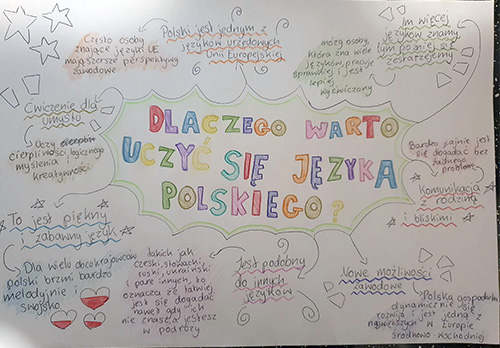 DLACZEGO WARTO
UCZYĆ SIĘ JĘZYKA
POLSKIEGO?
Często osoby
znające języki UE
mają szersze perspektywy
zawodowe
Polski jest jednym z
języków urzędowych
Unii Europejskiej
mózg osoby,
która zna wiele
języków, pracuje
sprawniej i jest
lepiej
wyćwiczony
Im więcej
języków znamy
tym później się
zestarzejemy
Ćwiczenie dla
umysłu
Uczy
cierpliwości, logicznego
myślenia i
kreatywności
To jest piękny
i zabawny język
Dla wielu obcokrajowców
polski brzmi bardzo
melodyjnie i
swojsko
Jest podobny
do innych
języków
takich jak
czeski, słowacki,
ruski, ukraiński
i parę innych, to
oznacza że łatwiej
jest się dogadać
nawet gdy ich
nie znasz, a jesteś
w podróży
Nowe możliwości
zawodowe
Polska gospodarka
dynamicznie się
rozwija i jest jedną z
największych w Europie
środkowo-wschodniej
Komunikacja
z rodziną
i bliskimi
Bardzo fajnie jest
się dogadać bez
żadnego
problemu